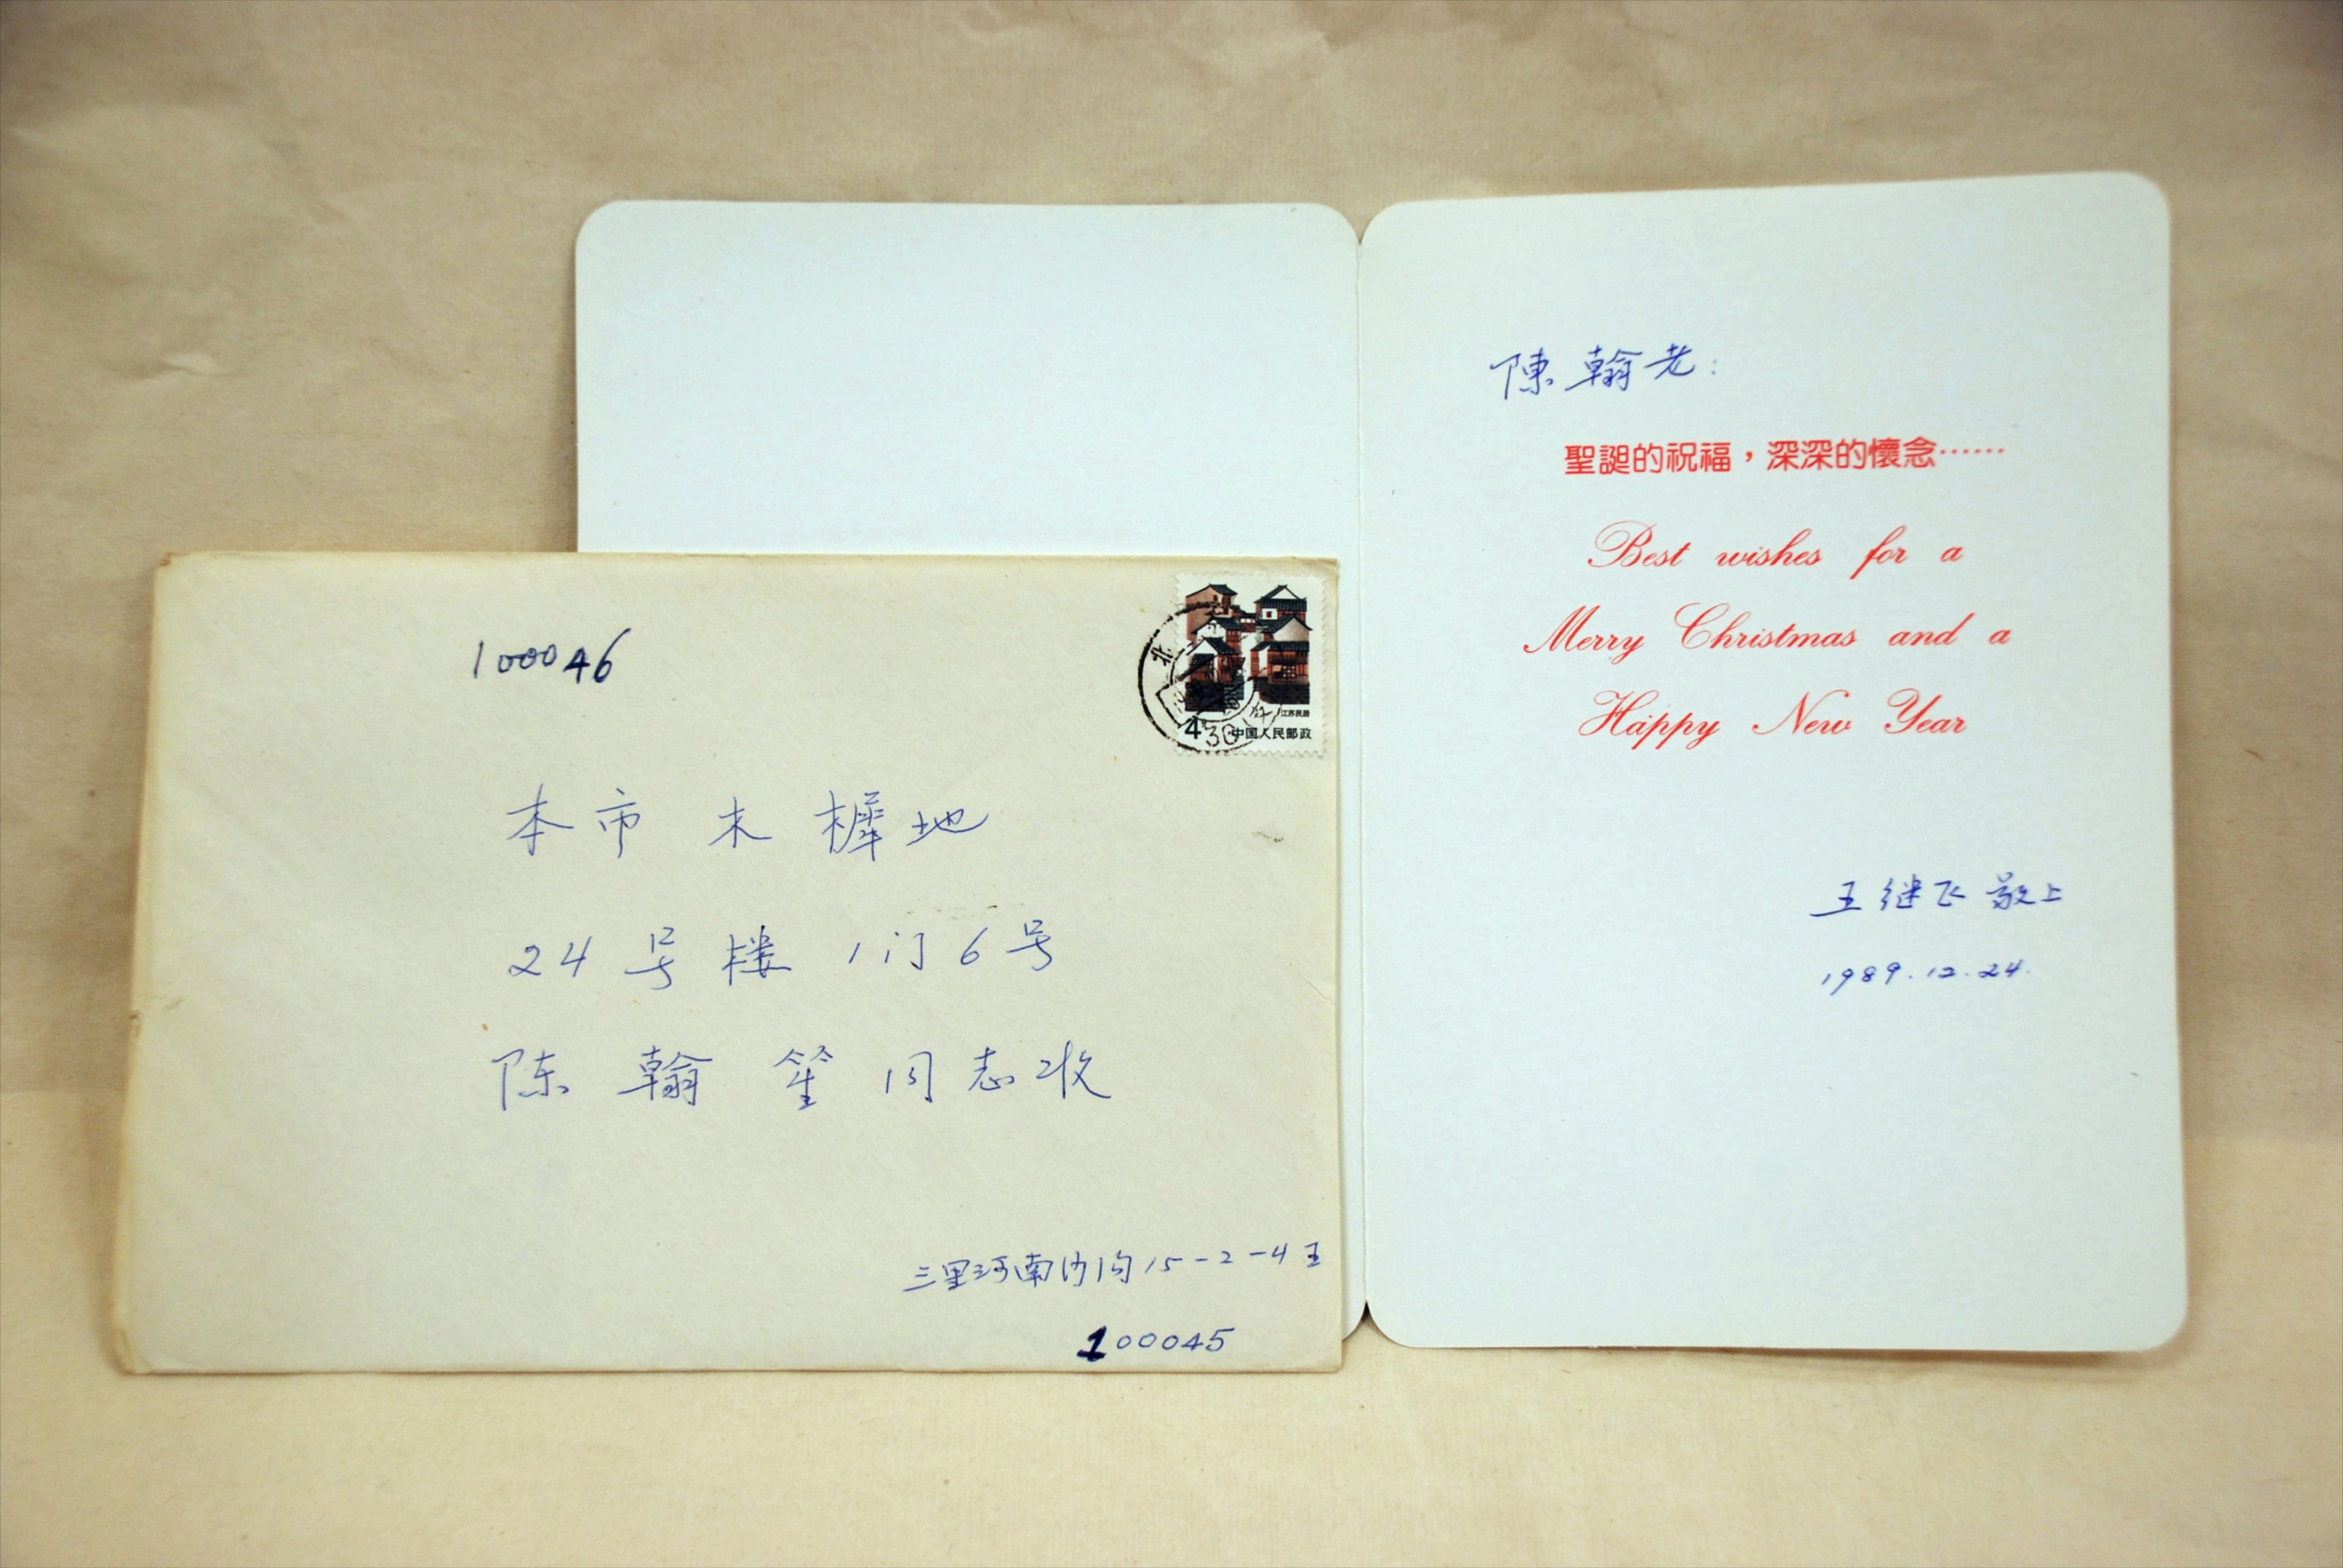 100046
4
江苏民居
中国人民邮政
北
本市 木樨地
24号楼 1门6号
陈翰笙同志收
三里河南沙沟15-2-4王
100045
陳翰老：
聖誕的祝福，深深的懷念……
Best wishes for a
Merry Christmas and a
Happy New Year
王继飞敬上
1989.12.24.